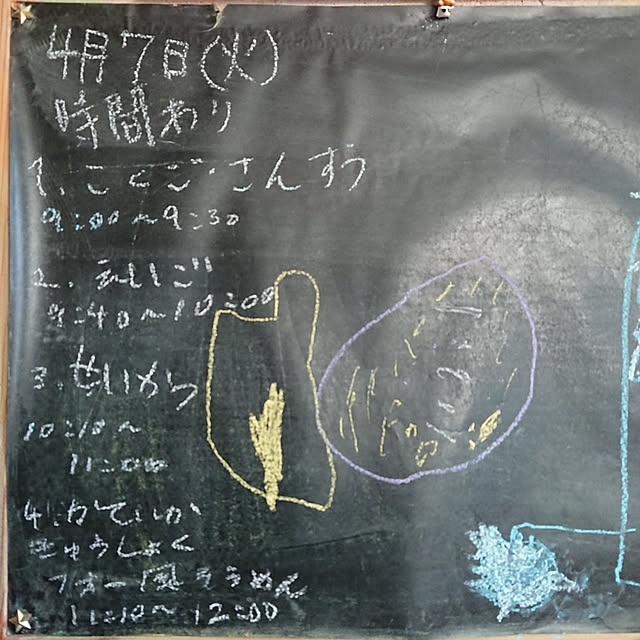 4月7日(火)
時間わり
1. こくご・さんすう
9:00〜9:30
2. えいご
9:40〜10:00
3. せいかつ
10:10〜
11:00
4. かていか
きゅうしょく
フォー風そうめん
11:10〜12:00